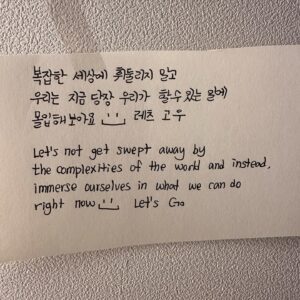 복잡한 세상에 휘둘리지 말고
우리는 지금 당장 우리가 할수 있는 일에
몰입해보아요 레츠 고우
Let's not get swept away by
the complexities of the world and instead,
immerse ourselves in what we can do
right now Let's Go